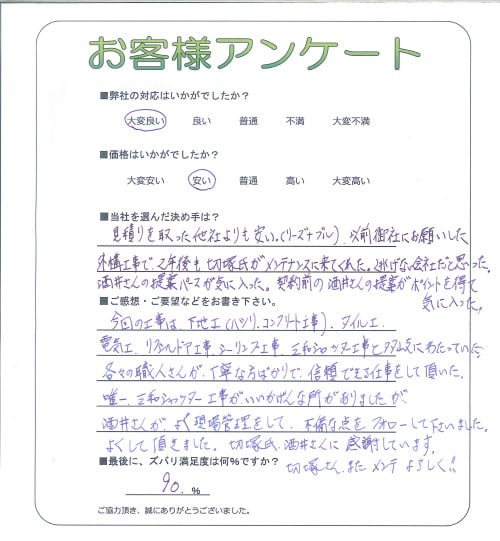 お客様アンケート
■弊社の対応はいかがでしたか？
大変良い 良い 普通 不満 大変不満
■価格はいかがでしたか？
大変安い 安い 普通 高い 大変高い
■当社を選んだ決め手は？
見積りを取った他社よりも安い。(リーズナブル)、以前御社にお願いした
外構工事で、2年後も切塚氏がメンテナンスに来てくれた。逃げない会社だと思った。
酒井さんの提案パースが気に入った。契約前の酒井さんの提案がポイントを得て
気に入った。
■ご感想・ご要望などをお書き下さい。
今回の工事は、下地工(ハツリ、コンクリート工事)、タイル工、
電気工、リクシルドア工事、シーリング工事、三和シャッター工事と多岐にわたっていた
各々の職人さんが、丁寧な方ばかりで、信頼できる仕事をして頂いた。
唯一、三和シャッター工事がいいかげんな所がありましたが
酒井さんが、よく現場管理をして、不備な点をフォローして下さいました。
よくして頂きました。切塚氏、酒井さんに感謝しています。
切塚さん、またメンテよろしく!!
■最後に、ズバリ満足度は何%ですか？
90. %
ご協力頂き、誠にありがとうございました。